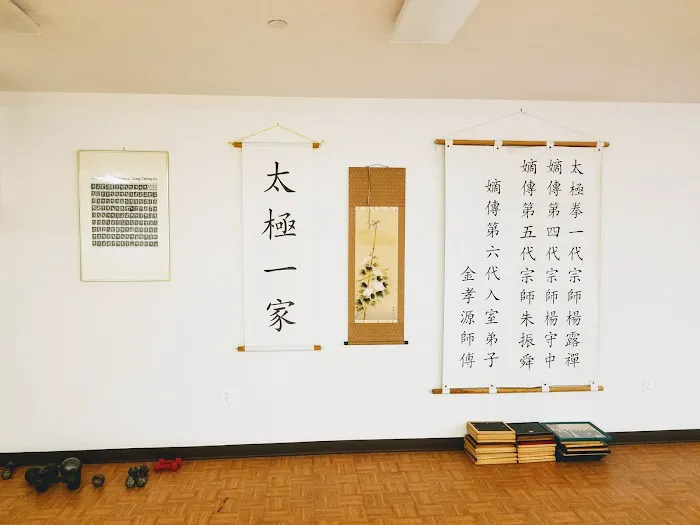 太極一家
太極拳一代宗師楊露禪
嫡傳第四代宗師楊守中
嫡傳第五代宗師朱振舜
嫡傳第六代入室弟子
金孝源師傅